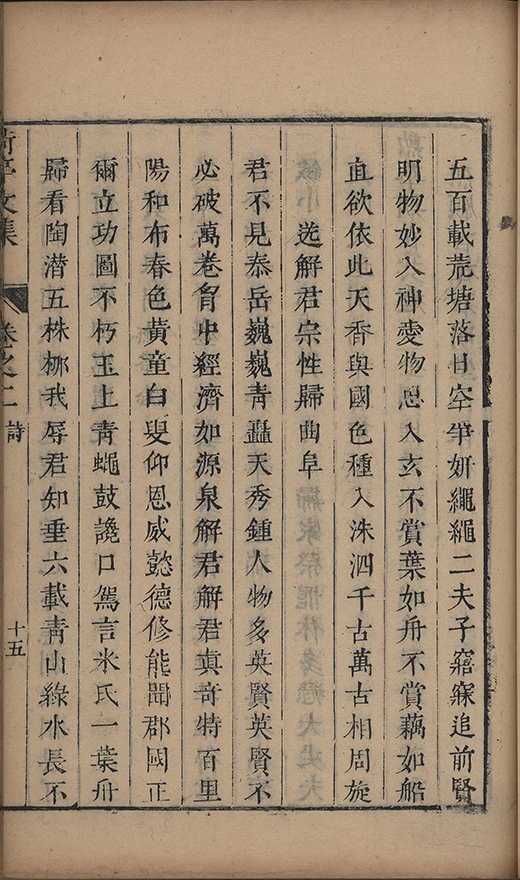 五百載荒塘落日空爭妍繩繩二夫子寤寐追前賢
明物妙入神愛物思入玄不賞葉如舟不賞藕如船
直欲依此天香與國色種入洙泗千古萬古相周旋
送解君宗性歸曲阜
君不見泰岳巍巍青矗天秀鍾人物多英賢英賢不
必破萬卷胷中經濟如源泉解君解君真奇特百里
陽和布春色黃童白叟仰恩威懿德修能聞郡國正
爾立功圖不朽玉上青蠅鼓讒口駕言米氏一葉舟
歸看陶潛五株栁我辱君知垂六載青山綠水長不
文集
卷之二
詩
十五